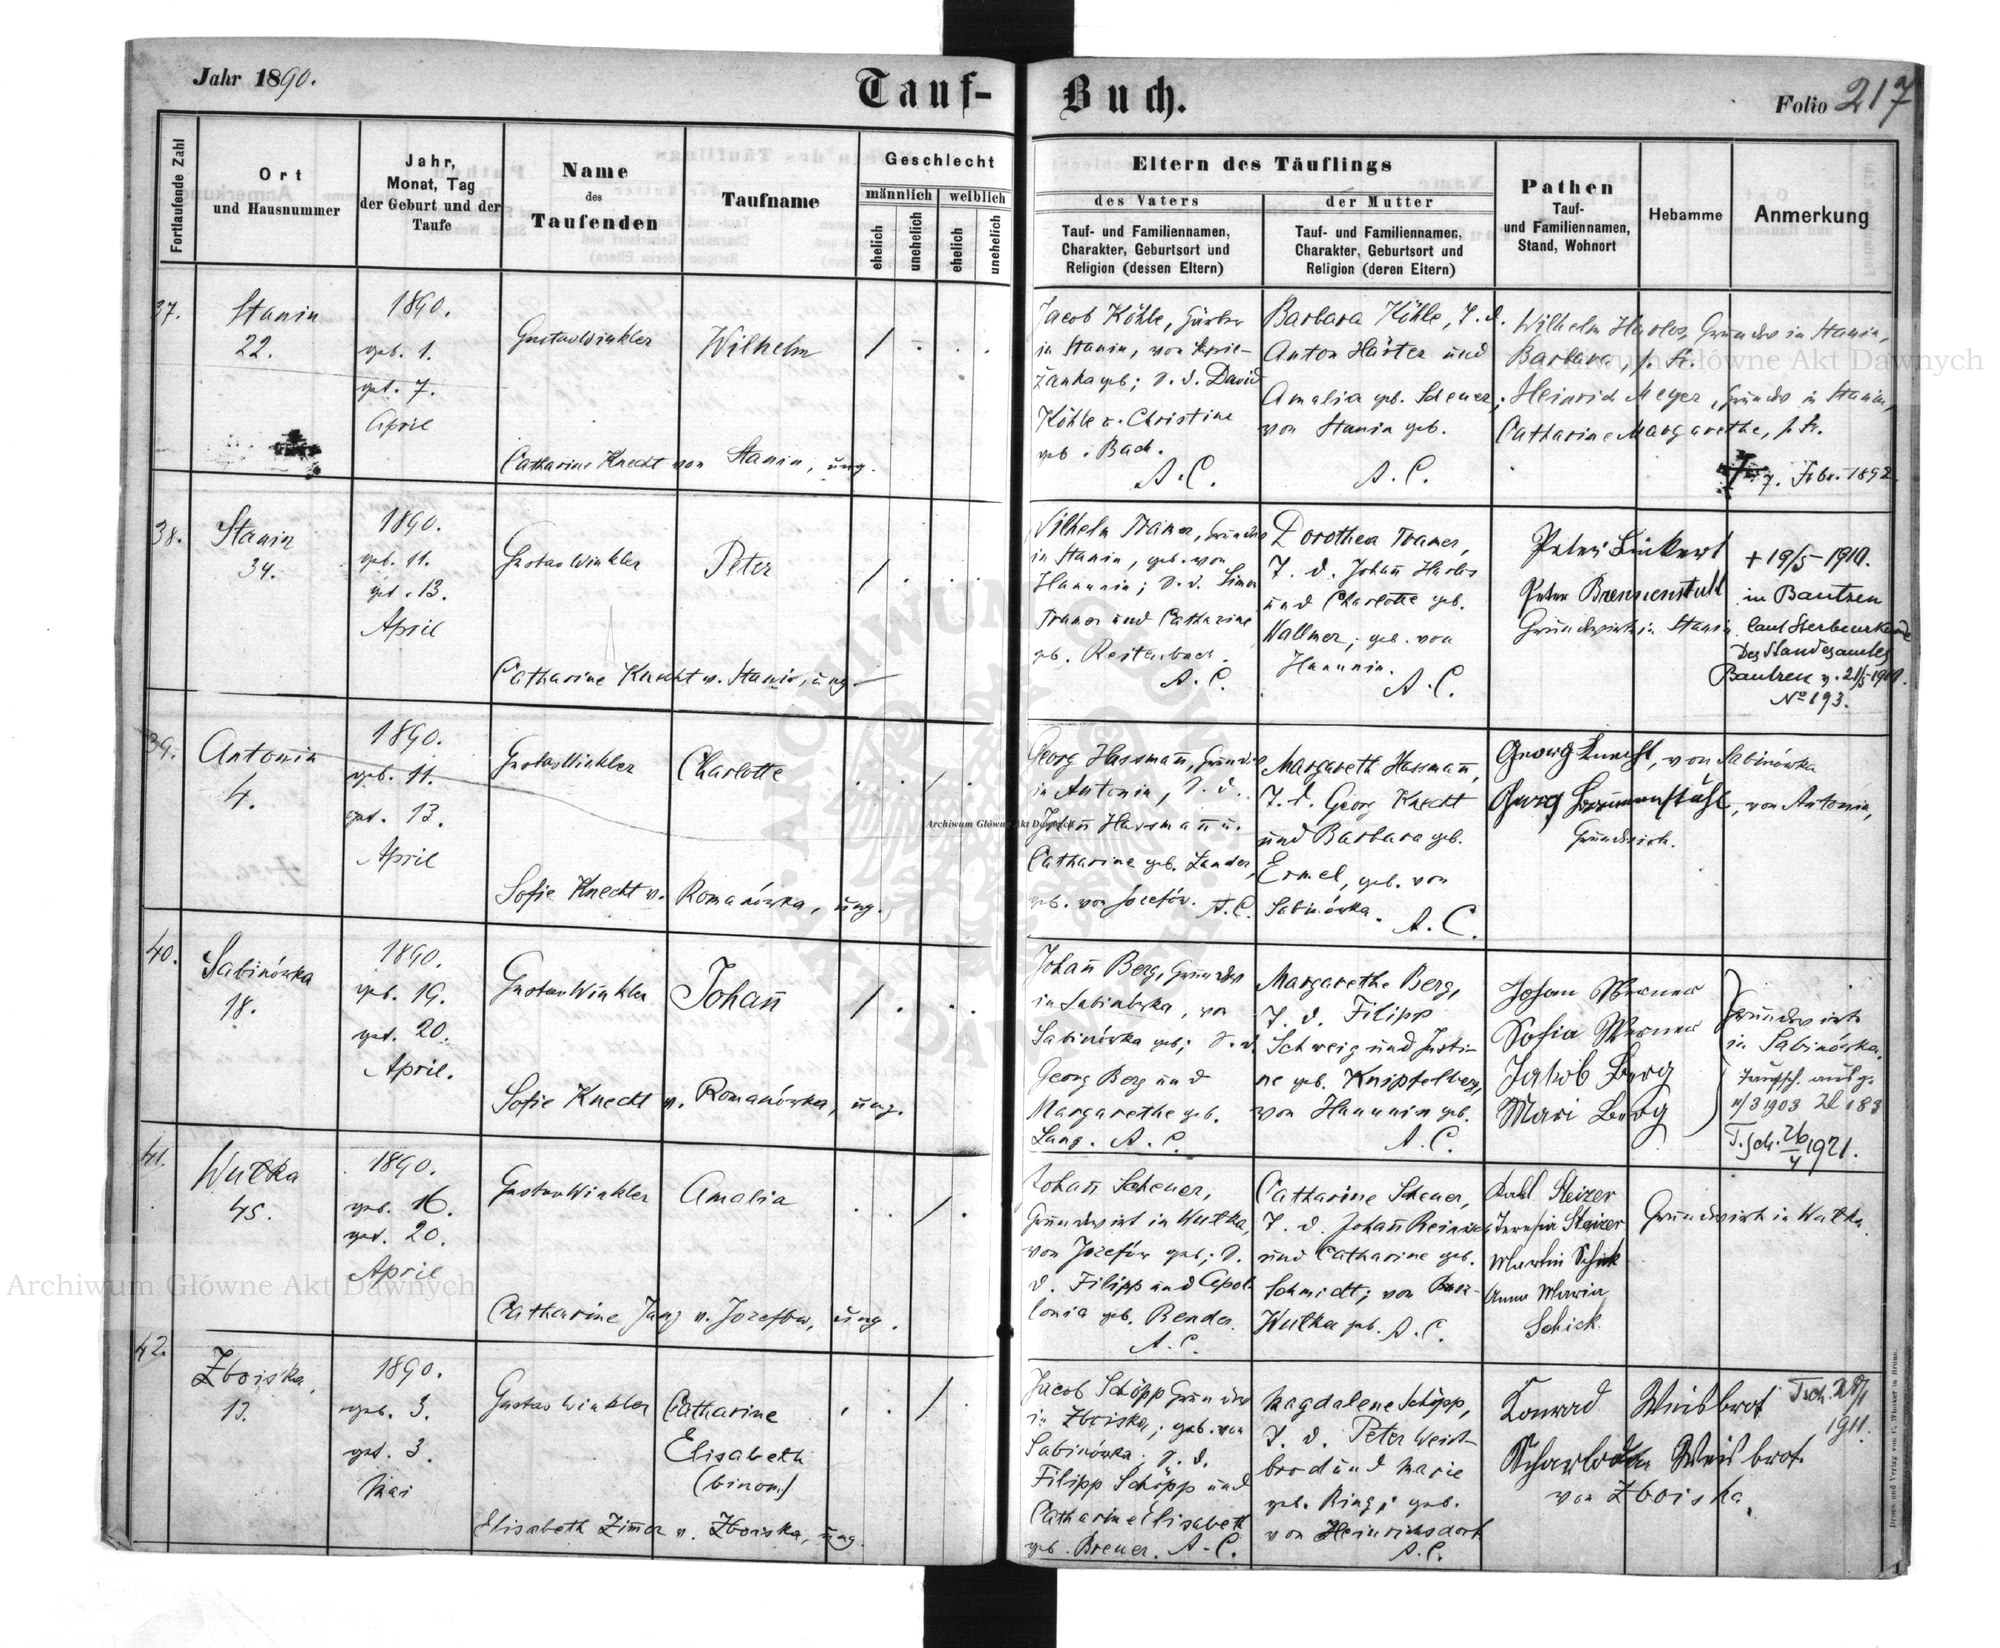 Jahr 1890.
Tauf-
Buch.
Folio 217
Fortlaufende Zahl
Ort
und Hausnummer
Jahr,
Monat, Tag
der Geburt und der
Taufe
Name
des
Taufenden
Taufname
Geschlecht
männlich
weiblich
ehelich
unehelich
ehelich
unehelich
Eltern des Täuflings
des Vaters
Tauf- und Familiennamen,
Charakter, Geburtsort und
Religion (dessen Eltern)
der Mutter
Tauf- und Familiennamen,
Charakter, Geburtsort und
Religion (deren Eltern)
Pathen
Tauf-
und Familiennamen,
Stand, Wohnort
Hebamme
Anmerkung
37.
Stanin
22.
1890.
geb. 1.
get. 7.
April
Gustav Winkler
Wilhelm
Catharine Knecht von Stanin, ung.
Jacob Köhle,
in Stanin, von
geb; S. d. David
Köhle u. Christine
geb. Bach.
A. C.
Barbara Köhle, T. d.
Anton Härter und
Amalia geb. Scheuer;
von Stanin geb.
A. C.
Wilhelm Harlos, Grundw in Stanin,
Barbara, s. Fr.
Heinrich Meyer, Grundw in Stanin,
Catharine Margarethe, s. Fr.
7. Febr. 1892
38.
Stanin
34.
1890.
geb. 11.
get. 13.
April
Gustav Winkler
Peter
Catharine Knecht v. Stanin, ung.
Wilhelm Tramer, Grundw
in Stanin, geb. von
Hanunin; S. d. Simon
Tramer und Catharine
geb. Reitenbach.
A. C.
Dorothea Tramer,
T. d. Johañ Harlos
und Charlotte geb.
Wallner; geb. von
Hanunin.
A. C.
Peter Linkert
Peter Brennenstuhl
Grundwirth in Stanin
+ 19/5 1910.
in Bautzen
laut Sterbeurkunde
des Standesamtes
Bautzen v. 21/5 1910.
No 193.
39.
Antonin
4.
1890.
geb. 11.
get. 13.
April
Gustav Winkler
Charlotte
Sofie Knecht v. Romanówka, ung.
Georg Hassmañ, Grundw
in Antonin, S. d.
Johañ Hassmañ u.
Catharine geb. Lander,
geb. von Josefów. A. C.
Margareth Hassmañ,
T. d. Georg Knecht
und Barbara geb.
Ermel, geb. von
Sabinówka.
A. C.
Georg Knecht, von Sabinówka
Georg Brennenstuhl, von Antonin,
Grundwirth.
40.
Sabinówka
18.
1890.
geb. 19.
get. 20.
April.
Gustav Winkler
Johañ
Sofie Knecht v. Romanówka, ung.
Johañ Berg, Grundw
in Sabinówka, von
Sabinówka geb; S. d.
Georg Berg und
Margarethe geb.
Lang. A. C.
Margarethe Berg,
T. d. Filipp
Schweig und Justi-
ne geb. Knipfelberg,
von Hanunin geb.
A. C.
Johan Werner
Sofia Werner
Jakob Berg
Mari Berg
Grundwirte
in Sabinówka.
Taufsch. ausg.
11/3 1903 Zl 183
T. sch. 26/4 1921.
41.
Wutka
45.
1890.
geb. 16.
get. 20.
April
Gustav Winkler
Amalia
Catharine Jung v. Jozefów, ung.
Johañ Scheuer,
Grundwirt in Wutka,
von Jozefów geb; S.
d. Filipp und Apol-
lonia geb. Bender.
A. C.
Catharine Scheuer,
T. d. Johañ
und Catharine geb.
Schmidt; von
Wutka geb. A. C.
Karl Steizer
Teresia Steizer
Martin Schick
Anna Maria
Schick.
Grundwirth in Wutka
42.
Zboiska,
13.
1890.
geb. 3.
get. 3.
Mai
Gustav Winkler
Catharine
Elisabeth
(binom.)
Elisabeth Zimer v. Zboiska, ung.
Jacob Schöpp Grundw
in Zboiska; geb. von
Sabinówka; S. d.
Filipp Schöpp und
Catharine Elisabeth
geb. Breuer. A. C.
Magdalene Schöpp,
T. d. Peter Weiss-
brod und Marie
geb. Ring; geb.
von Heinrichsdorf
A. C.
Konrad Weisbrot
Weisbrot.
von Zboiska.
Tsch. 28/1
1911.
Archiwum Główne Akt Dawnych
Archiwum Główne Akt Dawnych
Archiwum Główne Akt Dawnych